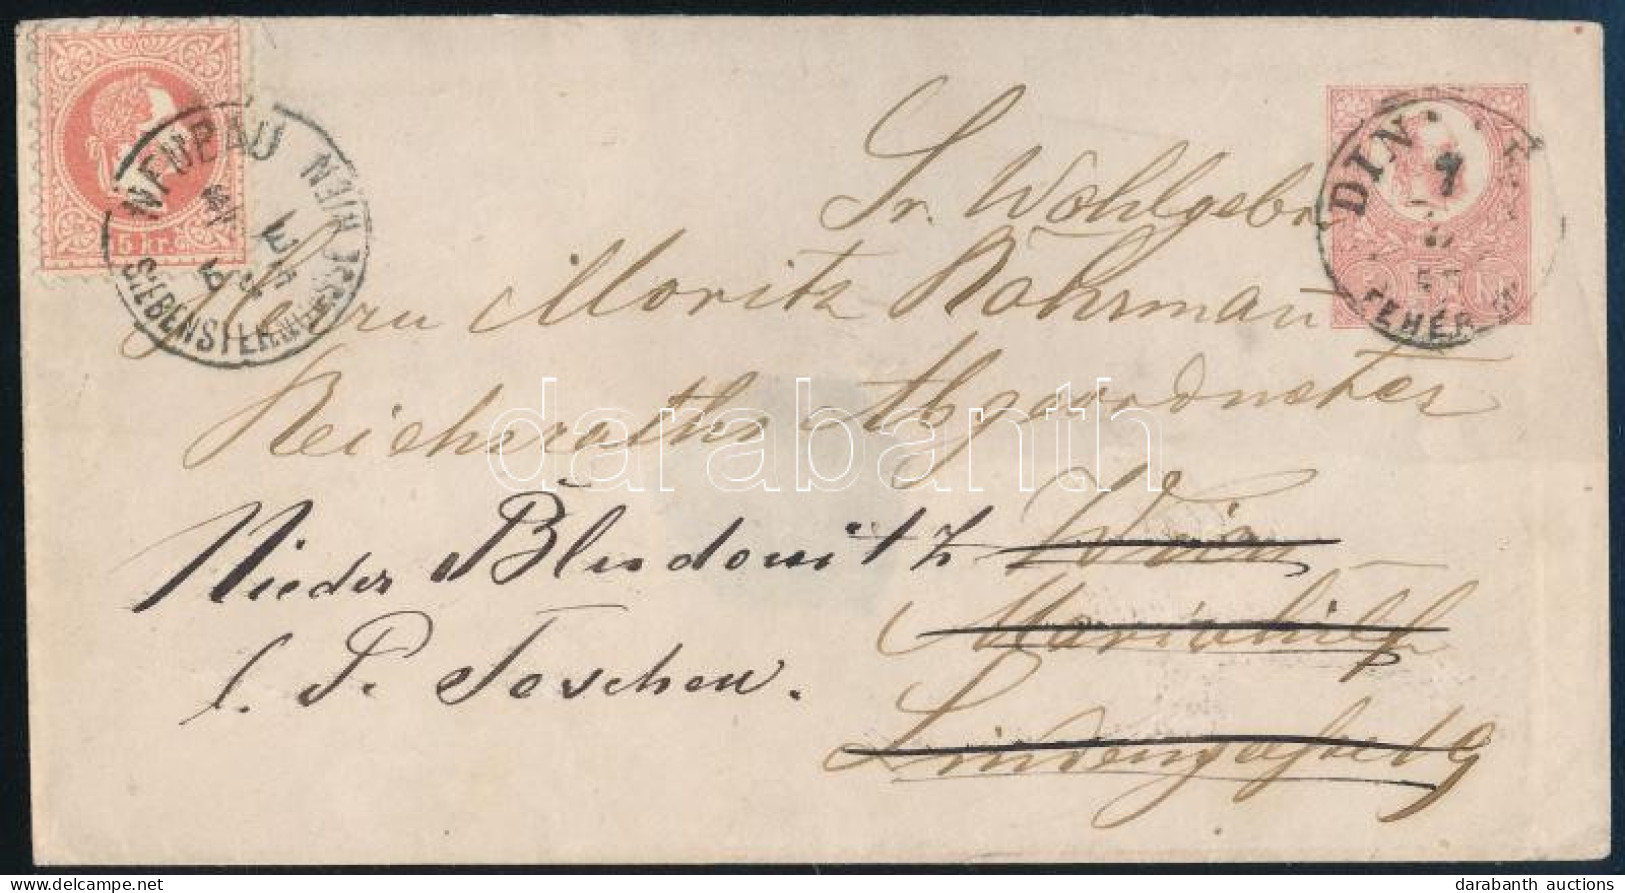 5 kr.
NEUBAU WIEN
SIEBENSTERN
DIN
7
FEHÉR
Sr. Wohlgebr
Herrn Moritz Röhrman
Reichsraths Abgeordneter
Wien
Mariahilf
Lindengasse 19
Nieder Bludowitz
l. P. Teschen.
darabanth
darabanth auctions